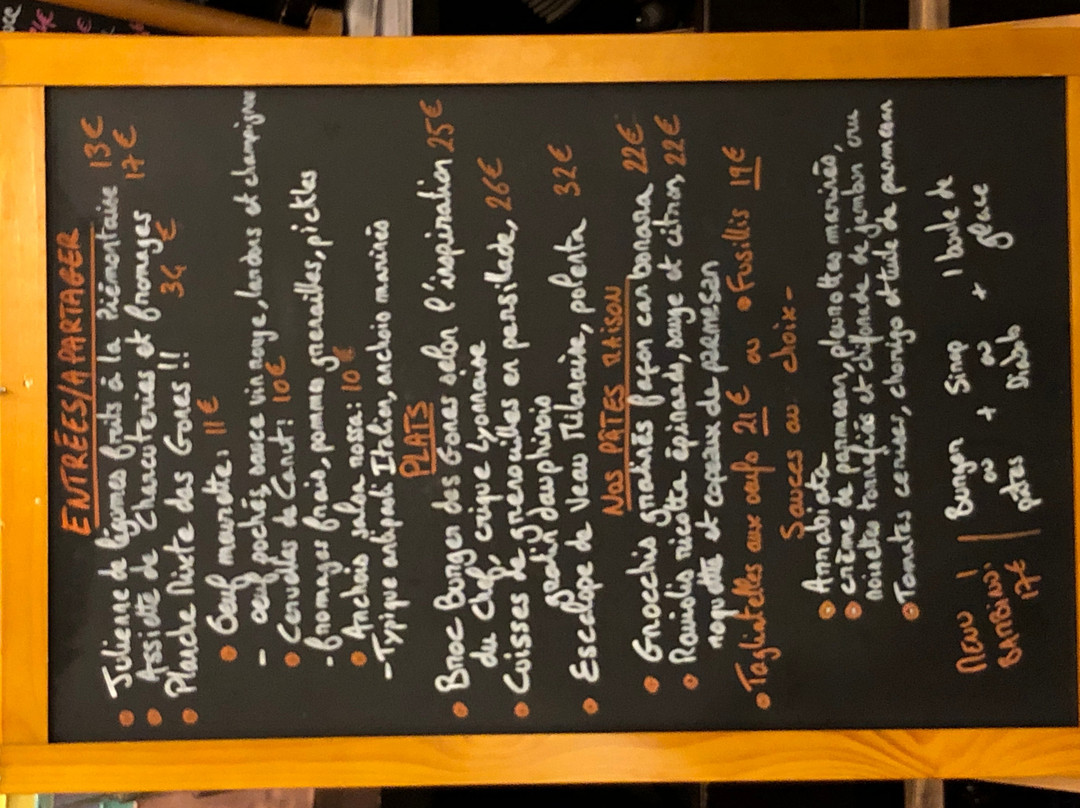 ENTRÉES/A PARTAGER
Julienne de légumes frits à la Piémontaise 13€
Assiette de charcuteries et fromages 17€
Planche Mixte des Gones !! 34€
Oeuf meurette: 11€
- oeuf poché, sauce vin rouge, lardons et champignons
Cervelle de Canut: 10€
- fromage frais, pomme grenailles, pickles
Anchois salsa rossa: 10€
- Typique antipasti Italien, anchois marinés
PLATS
Broc Burger des Gones selon l'inspiration 25€
du chef, crique Lyonnaise
Cuisses de grenouilles en persillade, 26€
gratin dauphinois
Escalope de Veau Milanaise, polenta 32€
Nos PÂTES MAISON
Gnocchis gratinés façon carbonara 22€
Raviolis ricotta épinards, sauge et citron, 22€
roquette et copeaux de parmesan
Tagliatelles aux oeufs 21€ ou Fusillis 19€
Sauces au choix -
Arrabiata
crème de parmesan, pleurottes marinées,
noisette torréfiés et chiffonade de jambon cru
Tomates cerises, chorizo et tuile de parmesan
MENU
BAMBINO:
17€
Burger ou pates
+
Sirop ou Diabolo
+
1 boule de glace